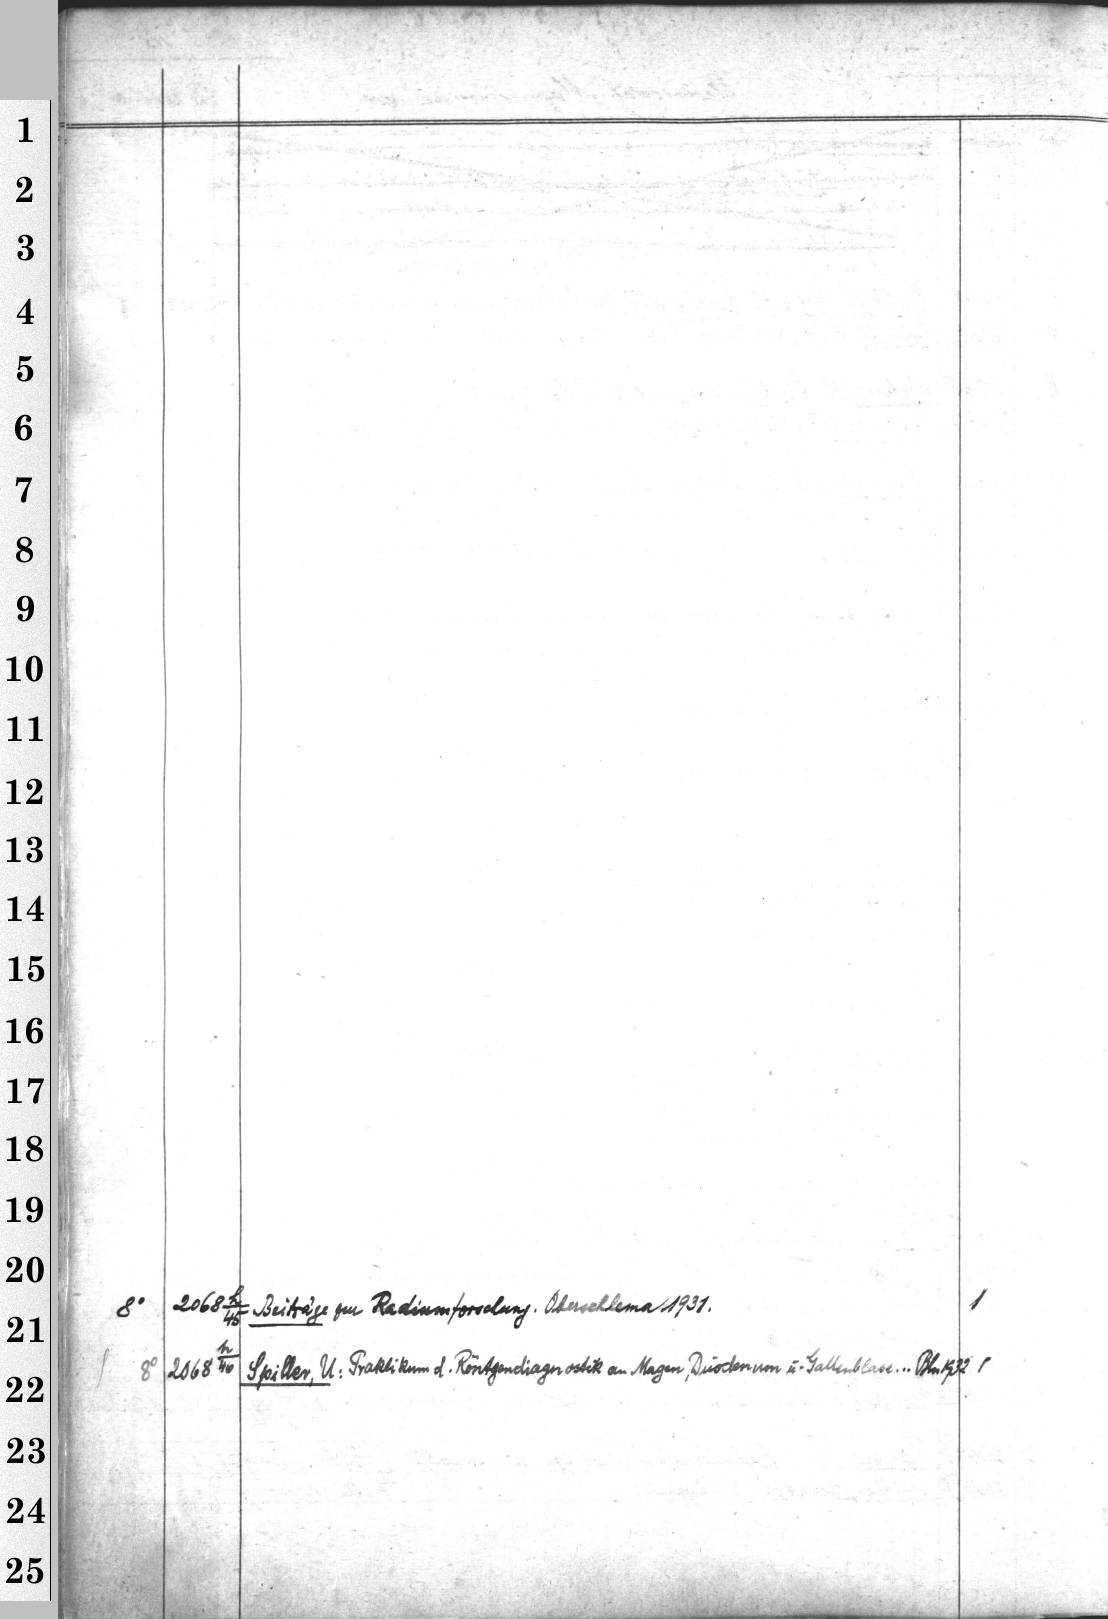 1
2
3
4
5
6
7
8
9
10
11
12
13
14
15
16
17
18
19
20
8° 2068 h/45 = Beiträge zur Radiumforschung. Oberschlema 1931. 1
21
8° 2068 h/40 Spiller, U: Praktikum d. Röntgendiagnostik an Magen, Duodenum u. Gallenblase... Bln 1932 1
22
23
24
25